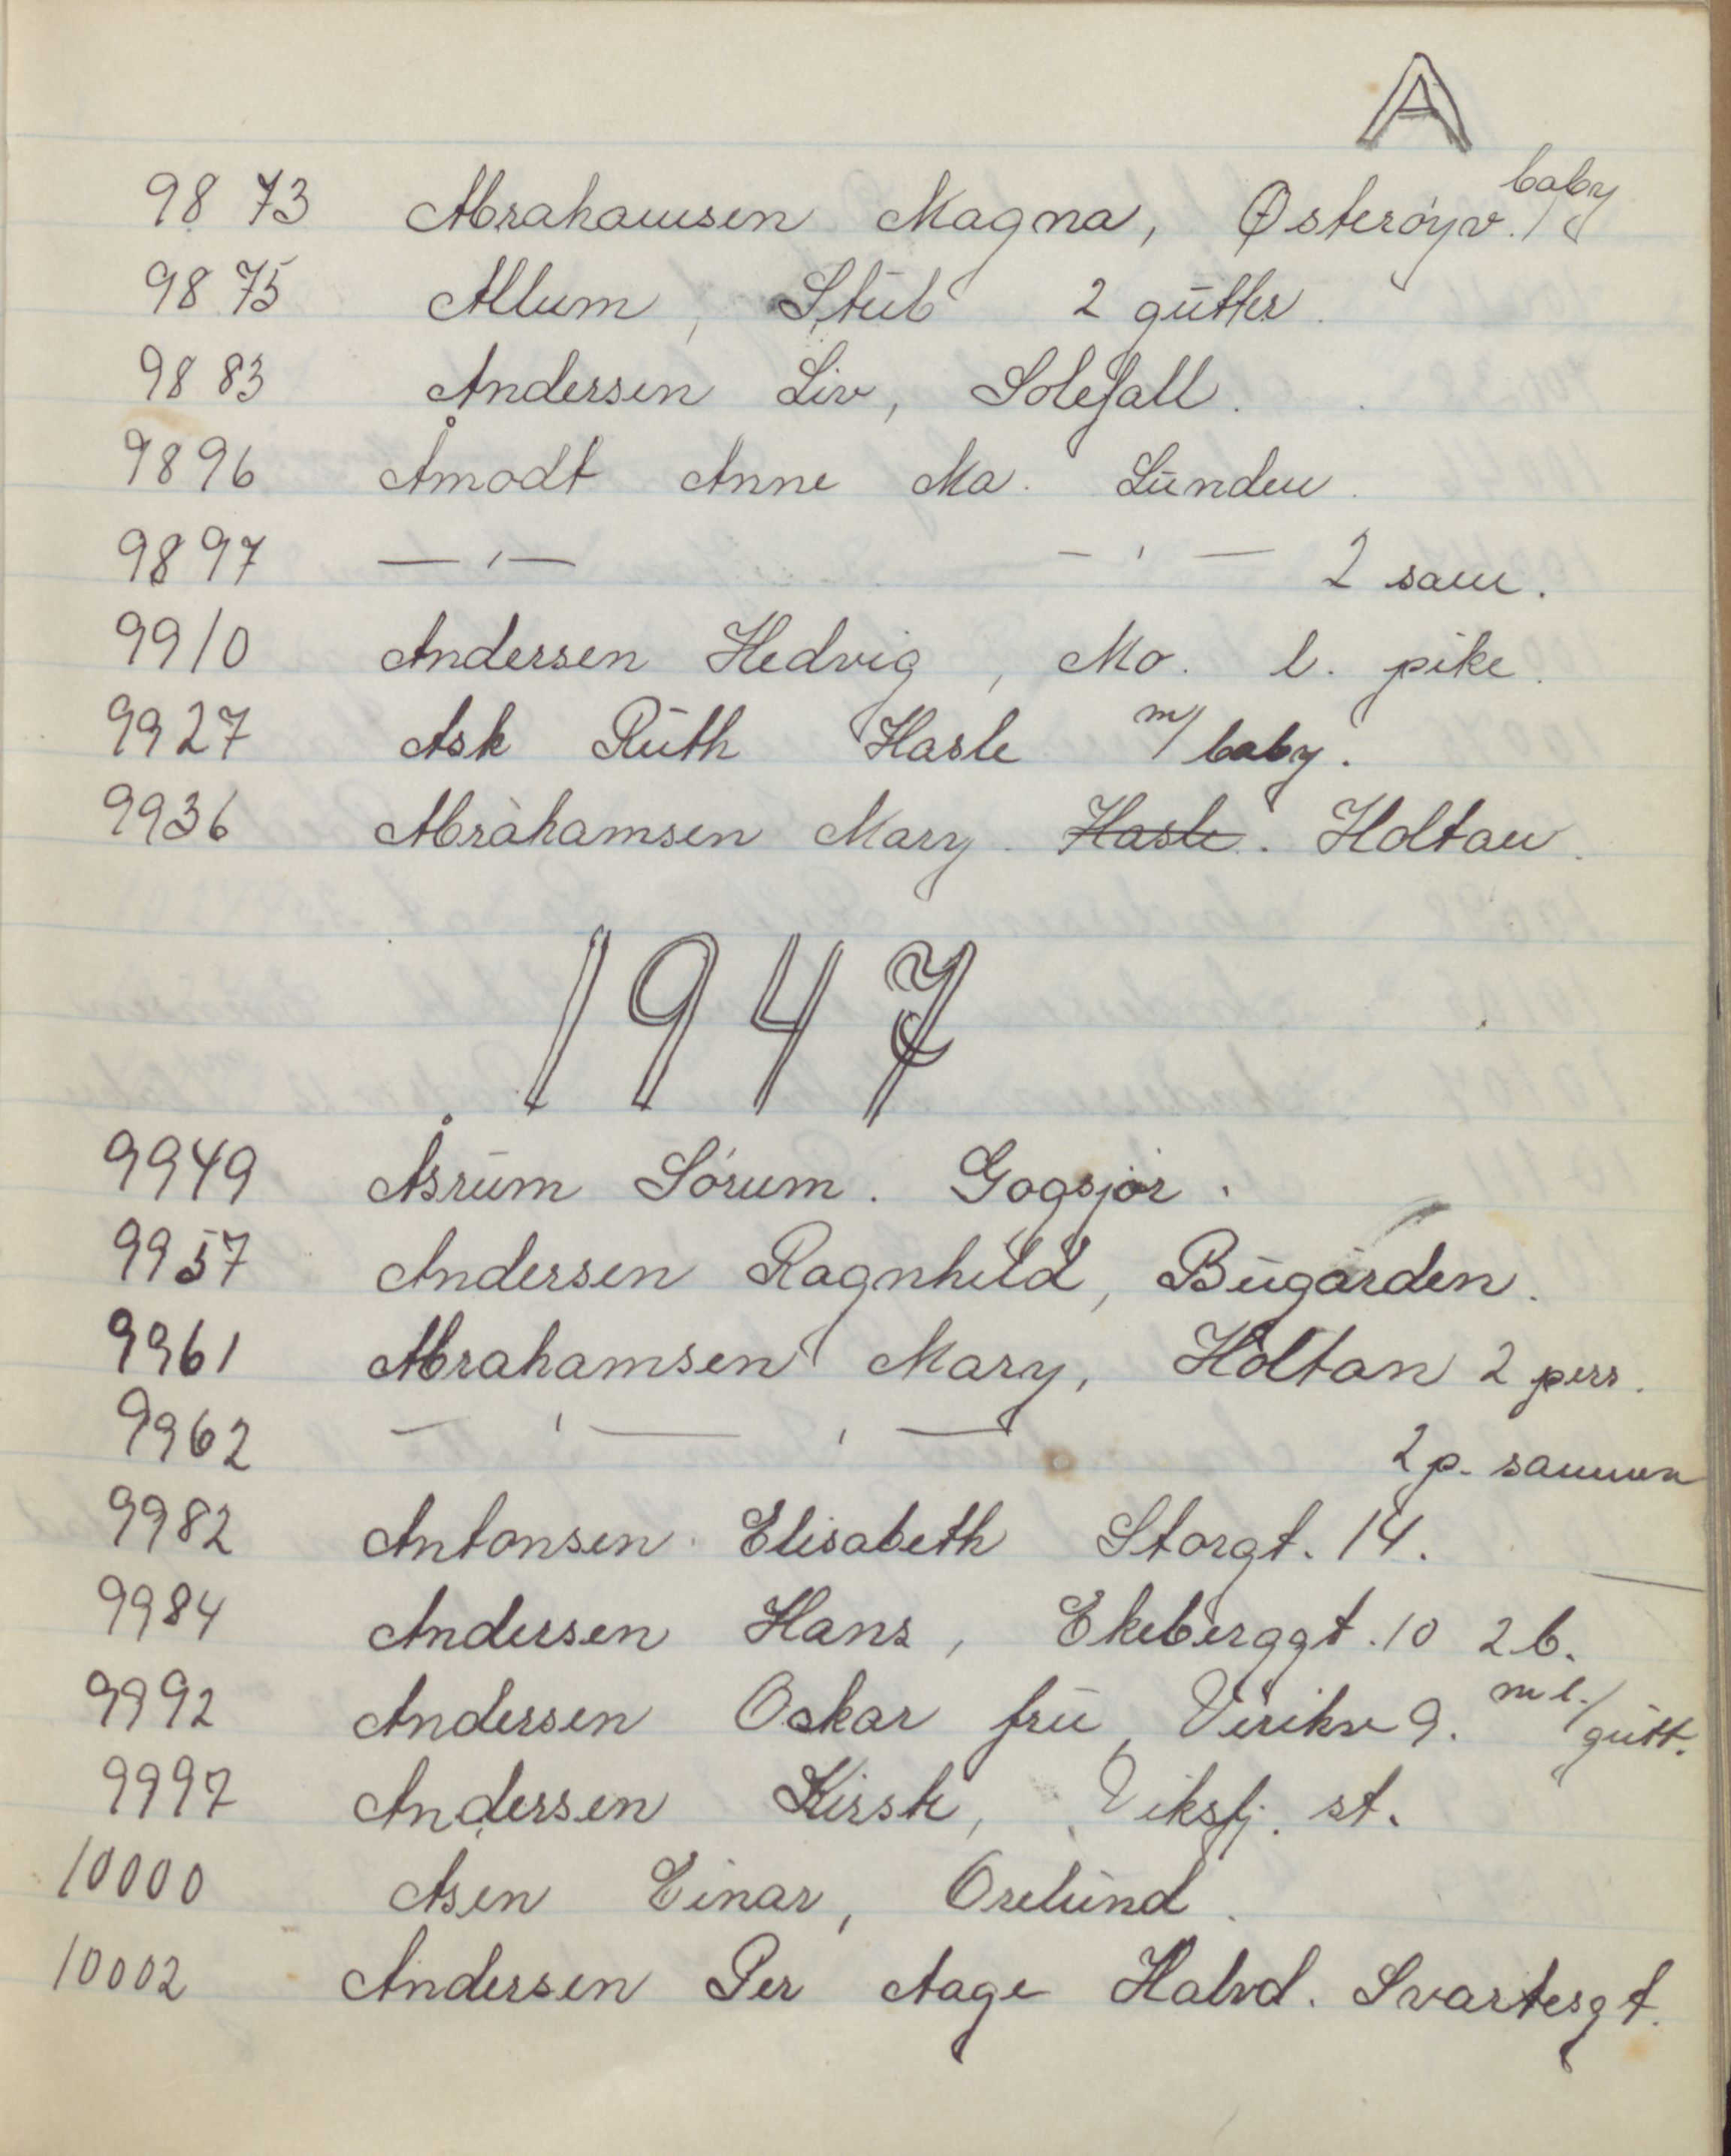 A
9873 Abrahamsen Magna, Østerøyv. / baby
9875 Allum, Stub 2 gutter.
9883 Andersen Liv, Solefall.
9896 Åmodt Anne Ma. Lunden.
9897 — ' — — ' — 2 sam.
9910 Andersen Hedvig, Mo. l. pike.
9927 Ask Ruth Hasle m/ baby.
9936 Abrahamsen Mary. Hasle. Holtan.
1947
9949 Åsrum Sórum. Gogsjør.
9957 Andersen Ragnhild, Bugården.
9961 Abrahamsen Mary, Holtan 2 pers.
9962 — ' — ' — 2 p. sammen
9982 Antonsen Elisabeth Storgt. 14.
9984 Andersen Hans, Ekeberggt. 10 2 b.
9992 Andersen Oskar fru, Virikv 9. m l./ gutt.
9997 Andersen Kirsti, Viksfj. st.
10000 Åsen Einar, Orelund.
10002 Andersen Per Aage Halvd. Svartesgt.